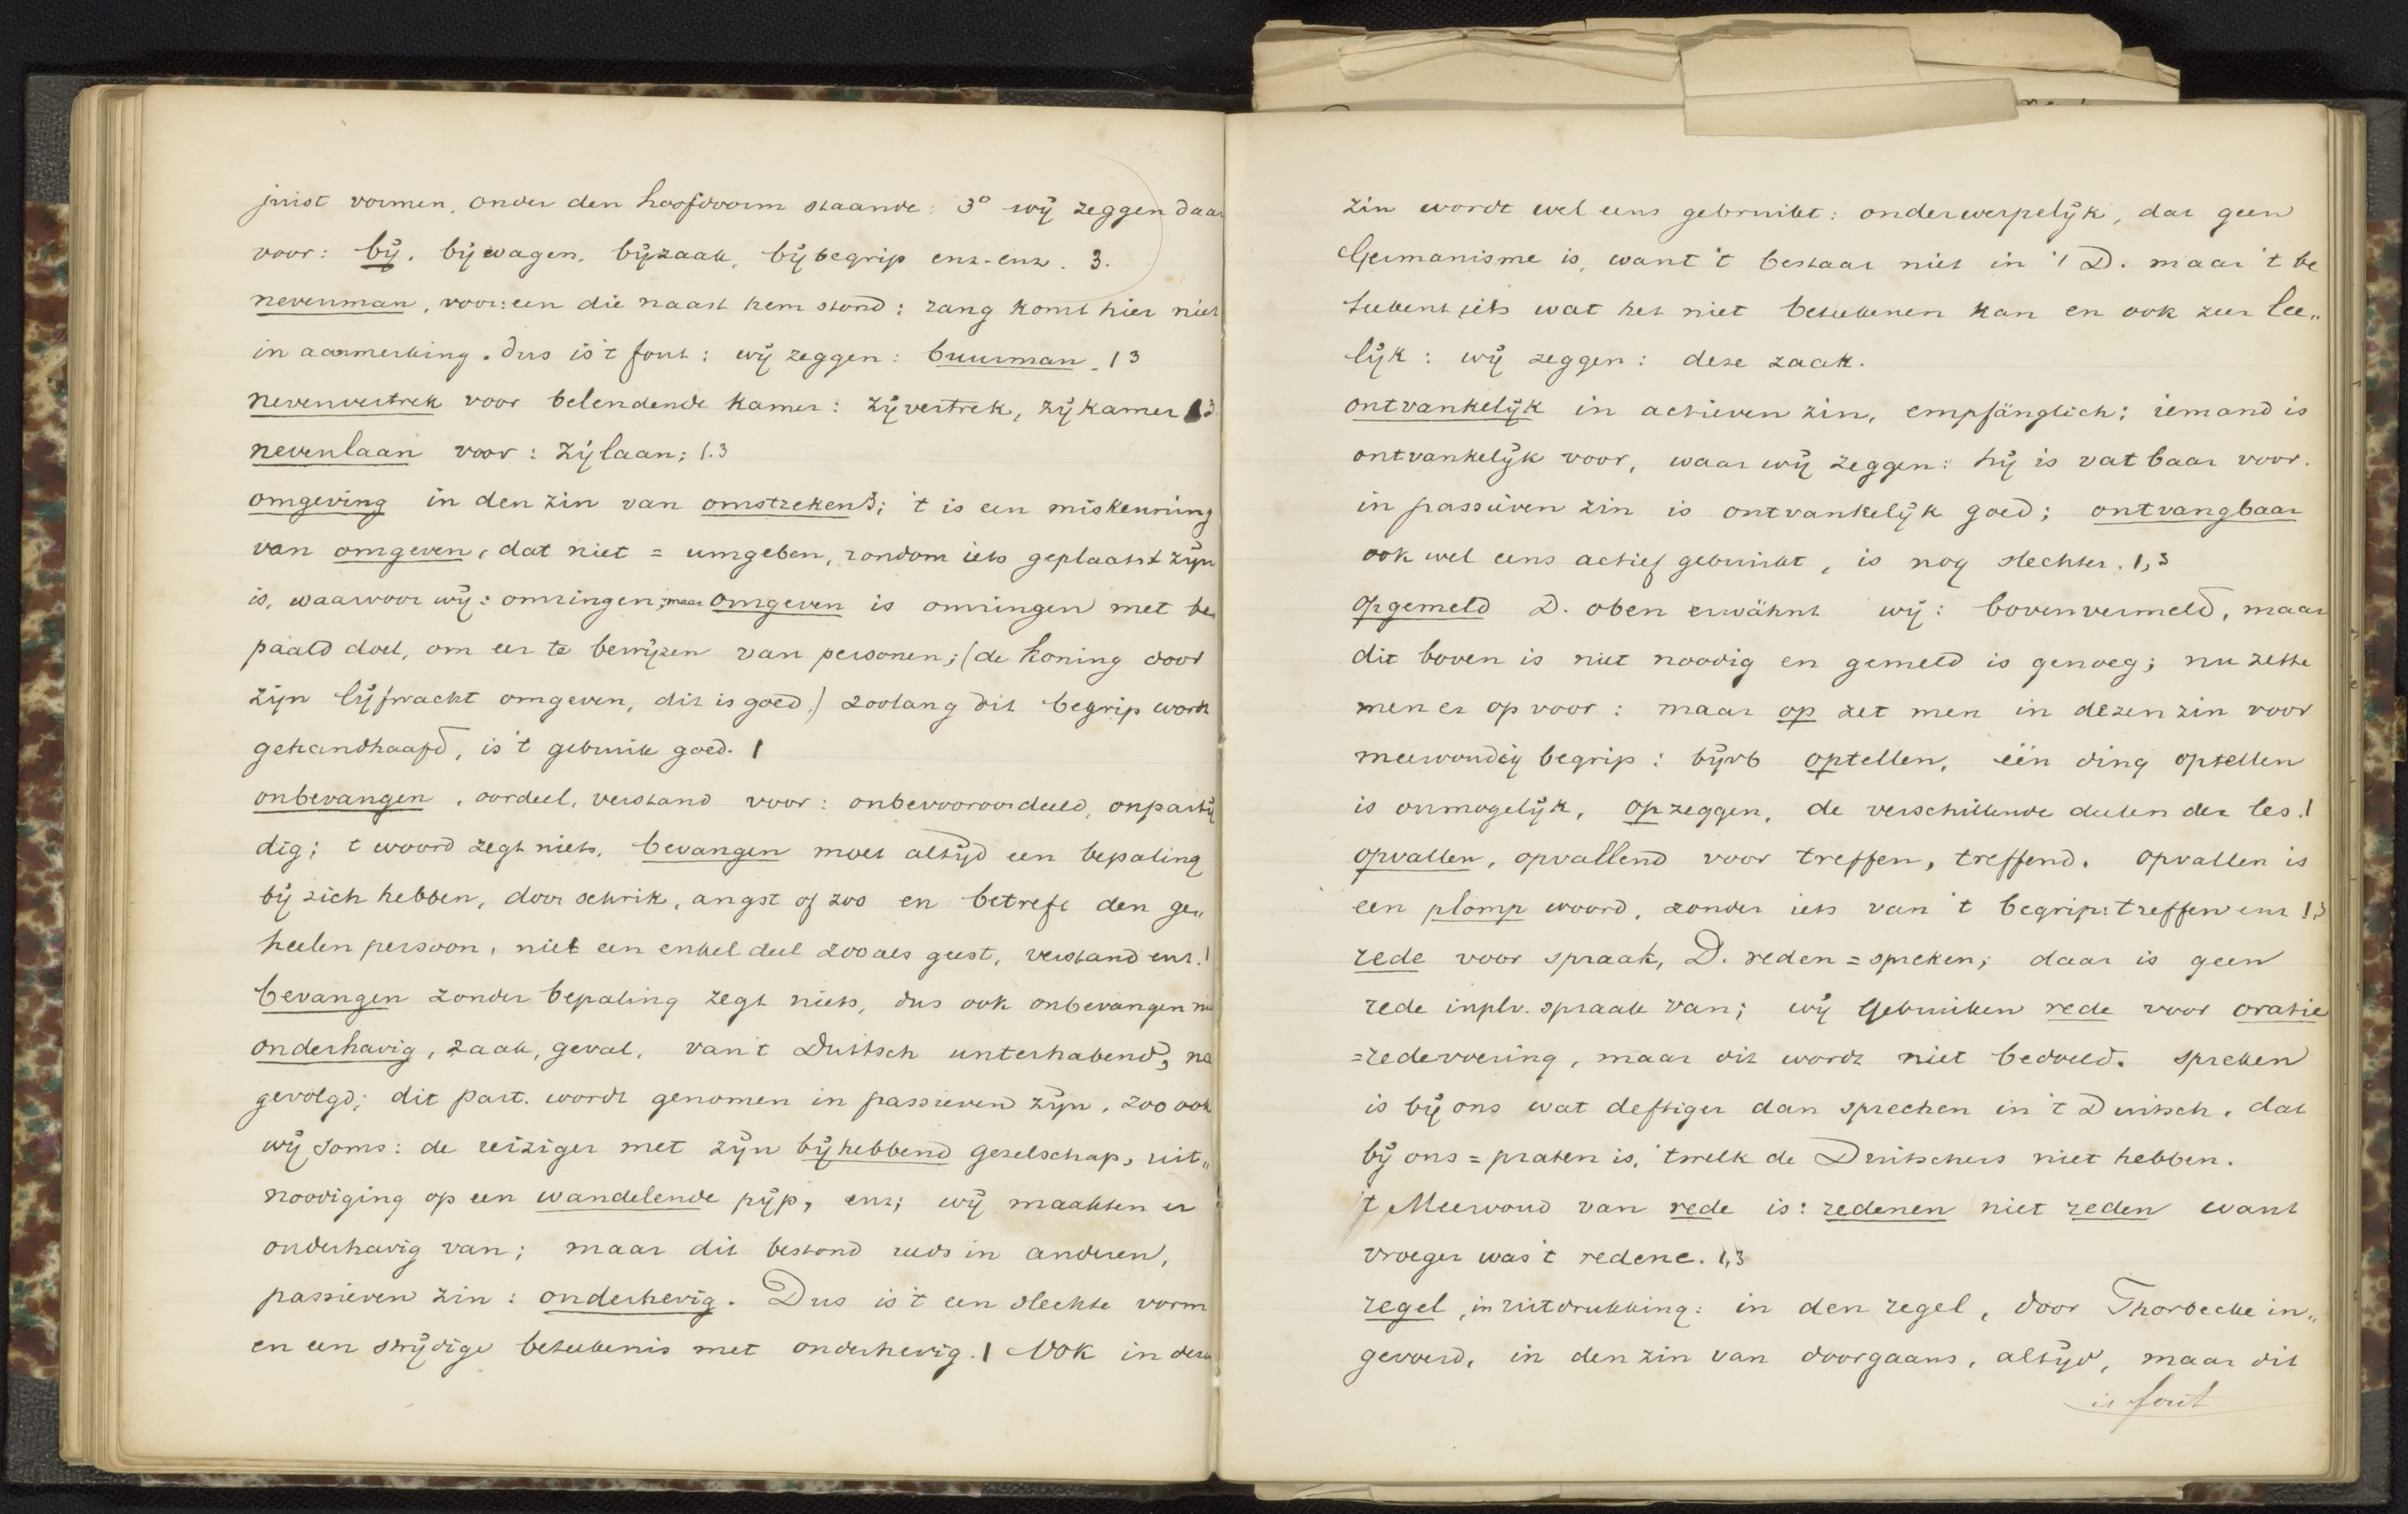 juist vormen, onder den hoofdvorm staande: 3° wij zeggen daar
voor: bij, bijwagen, bijzaak, bijbegrip enz. enz. 3.
nevenman, voor: een die naast hem stond; rang komt hier niet
in aanmerking. dus is 't fout: wij zeggen: buurman. 1 3
nevenvertrek voor belendende kamer: zijvertrek, zijkamer 1 3
nevenlaan voor: zijlaan; 1.3
omgeving in den zin van omstreken; 't is een miskenning
van omgeven, dat niet = umgeben, rondom iets geplaatst zijn
is, waarvoor wij: omringen; maar omgeven is omringen met be
paald doel, om eer te bewijzen van personen; (de koning door
zijn lijfwacht omgeven, dit is goed.) zoolang dit begrip wordt
gehandhaafd, is 't gebruik goed. 1
onbevangen, oordeel, verstand voor: onbevooroordeeld, onpartij
dig; t woord zegt niets, bevangen moet altijd een bepaling
bij zich hebben, door schrik, angst of zoo en betreft den ge„
heelen persoon, niet een enkel deel zooals geest, verstand enz. 1
bevangen zonder bepaling zegt niets, dus ook onbevangen
onderhavig, zaak, geval, van 't Duitsch unterhabend, na
gevolgd; dit part. wordt genomen in passieven zijn, zoo ook
wij soms: de reiziger met zijn bijhebbend gezelschap, uit„
noodiging op een wandelende pijp, enz; wij maakten er
onderhavig van; maar dit bestond reeds in anderen,
passieven zin: onderhevig. Dus is 't een slechte vorm
en een strijdige beteekenis met onderhevig. 1 Ook in dezen
zin wordt wel eens gebruikt: onderwerpelijk, dat geen
Germanisme is, want 't bestaat niet in 't D. maar 't be
teekent iets wat het niet beteekenen kan en ook zeer lee„
lijk: wij zeggen: deze zaak.
ontvankelijk in actieven zin, empfänglich; iemand is
ontvankelijk voor, waar wij zeggen: hij is vatbaar voor.
in passieven zin is ontvankelijk goed; ontvangbaar
ook wel eens actief gebruikt, is nog slechter. 1,3
opgemeld D. oben erwähnt wij: bovenvermeld, maar
dit boven is niet noodig en gemeld is genoeg; nu zette
men er op voor: maar op zet men in dezen zin voor
meervoudig begrip: bijvb optellen, één ding optellen
is onmogelijk, opzeggen, de verschillende deelen der les. 1
opvallen, opvallend voor treffen, treffend. opvallen is
een plomp woord, zonder iets van 't begrip: treffen enz 1,3
rede voor spraak, D. reden = spreken; daar is geen
rede inplv. spraak van; wij gebruiken rede voor oratie
= redevoering, maar dit wordt niet bedoeld. spreken
is bij ons wat deftiger dan sprechen in 't Duitsch, dat
bij ons = praten is, 'twelk de Duitschers niet hebben.
't Meervoud van rede is: redenen niet reden want
vroeger was 't redene. 1,3
regel, in uitdrukking: in den regel, door Thorbecke in„
gevoerd, in den zin van doorgaans, altijd, maar dit
is fout